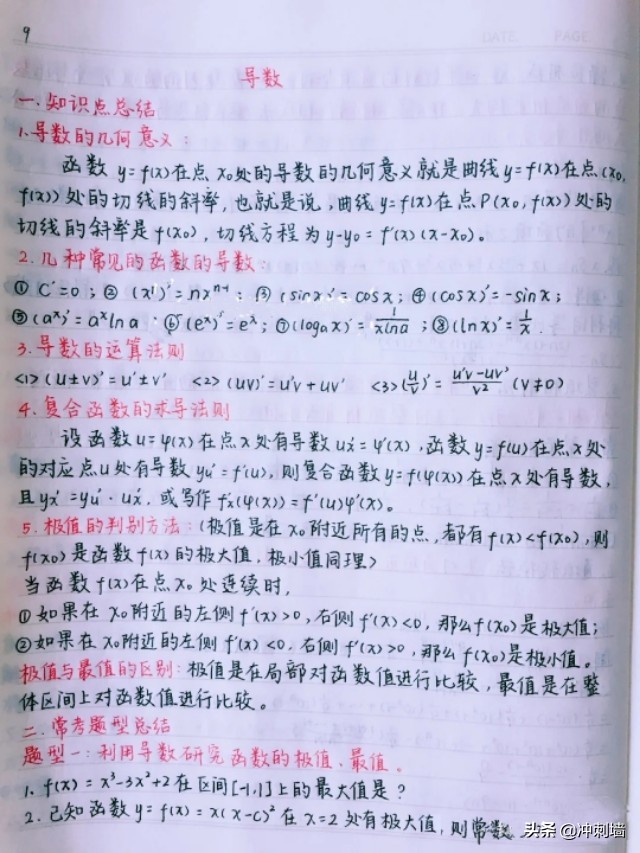 9
DATE PAGE
导数
一.知识点总结
1.导数的几何意义:
函数 y=f(x)在点 x₀处的导数的几何意义就是曲线y=f(x)在点(x₀,
f(x))处的切线的斜率,也就是说,曲线y=f(x)在点P(x₀,f(x))处的
切线的斜率是f(x₀),切线方程为y-y₀=f'(x)(x-x₀)。
2.几种常见的函数的导数:
① C'=0;② (xⁿ)'=nxⁿ⁻¹;③(sinx)'=cosx;④(cosx)'=-sinx;
⑤(aˣ)'=aˣlna ⑥(eˣ)'=eˣ;⑦(logax)'=1/xlna;⑧(lnx)'=1/x.
3.导数的运算法则
<1>(u±v)'=u'±v' <2>(uv)'=u'v+uv' <3>(u/v)'=u'v-uv'/v²(v≠0)
4.复合函数的求导法则
设函数u=φ(x)在点x处有导数ux'=φ'(x),函数y=f(u)在点x处
的对应点u处有导数yu'=f'(u),则复合函数y=f(φ(x))在点x处有导数,
且yx'=yu'·ux',或写作f'x(φ(x))=f'(u)φ'(x)。
5.极值的判别方法:(极值是在x₀附近所有的点,都有f(x)<f(x₀),则
f(x₀)是函数f(x)的极大值,极小值同理>
当函数f(x)在点x₀处连续时,
①如果在x₀附近的左侧f'(x)>0,右侧f'(x)<0,那么f(x₀)是极大值;
②如果在x₀附近的左侧f'(x)<0,右侧f'(x)>0,那么f(x₀)是极小值。
极值与最值的区别:极值是在局部对函数值进行比较,最值是在整
体区间上对函数值进行比较。
二.常考题型总结
题型一:利用导数研究函数的极值、最值。
1. f(x)=x³-3x²+2在区间[-1,1]上的最大值是?
2.已知函数y=f(x)=x(x-c)²在x=2处有极大值,则常数
头条 @冲刺墙